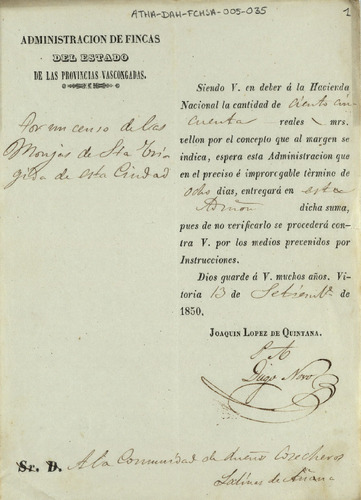 ATHA-DAH-FCHSA-005-035
1
ADMINISTRACION DE FINCAS
DEL ESTADO
DE LAS PROVINCIAS VASCONGADAS.
Por un censo de las
Monjas de Sta Brigida
de esta Ciudad
Siendo V. en deber á la Hacienda
Nacional la cantidad de ciento cin
cuenta reales mrs.
vellon por el concepto que al margen se
indica, espera esta Administracion que
en el preciso é improrogable término de
ocho dias, entregará en esta
Admon dicha suma,
pues de no verificarlo se procederá
contra V. por los medios prevenidos por
Instrucciones.
Dios guarde á V. muchos años. Vi-
toria 13 de Setiembe de
1850.
JOAQUIN LOPEZ DE QUINTANA.
P A
Diego Novo
Sr. D. A la Comunidad de Cosecheros
Salinas de Añana